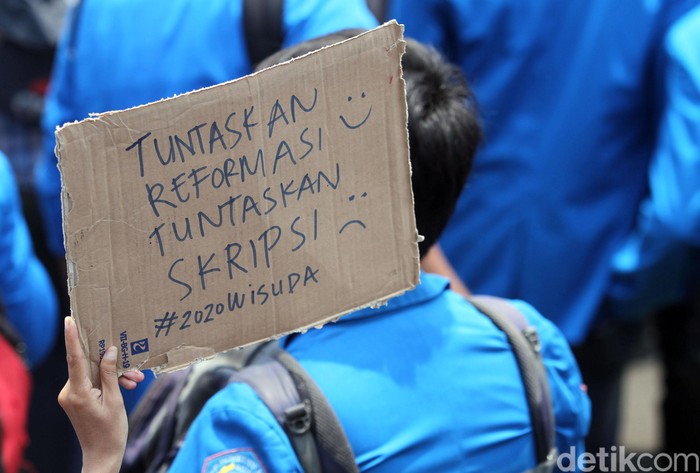 TUNTASKAN :)
REFORMASI
TUNTASKAN
SKRIPSI :(
#2020WISUDA
detikcom